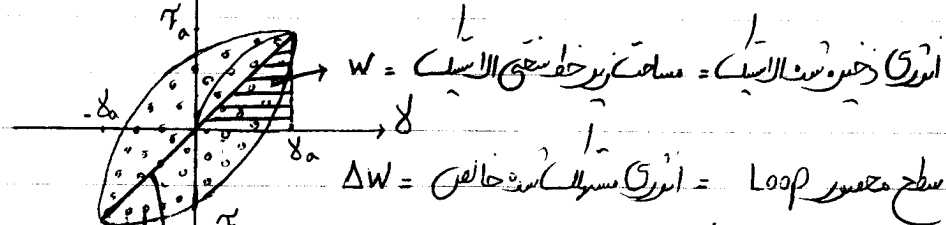 τₐ
انرژی ذخیره شده الاستیک = مساحت زیر خط منحنی الاستیک = W
-γₐ γₐ γ
سطح محصور Loop = انرژی مستهلک شده خالص = ΔW
τ